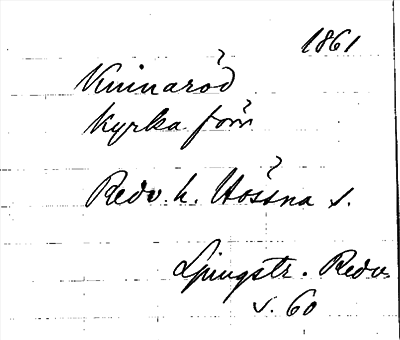 1861
Kinnaröd
kyrka förr
Redv. h. Hössna s.
Ljungstr. Redv.
s. 60